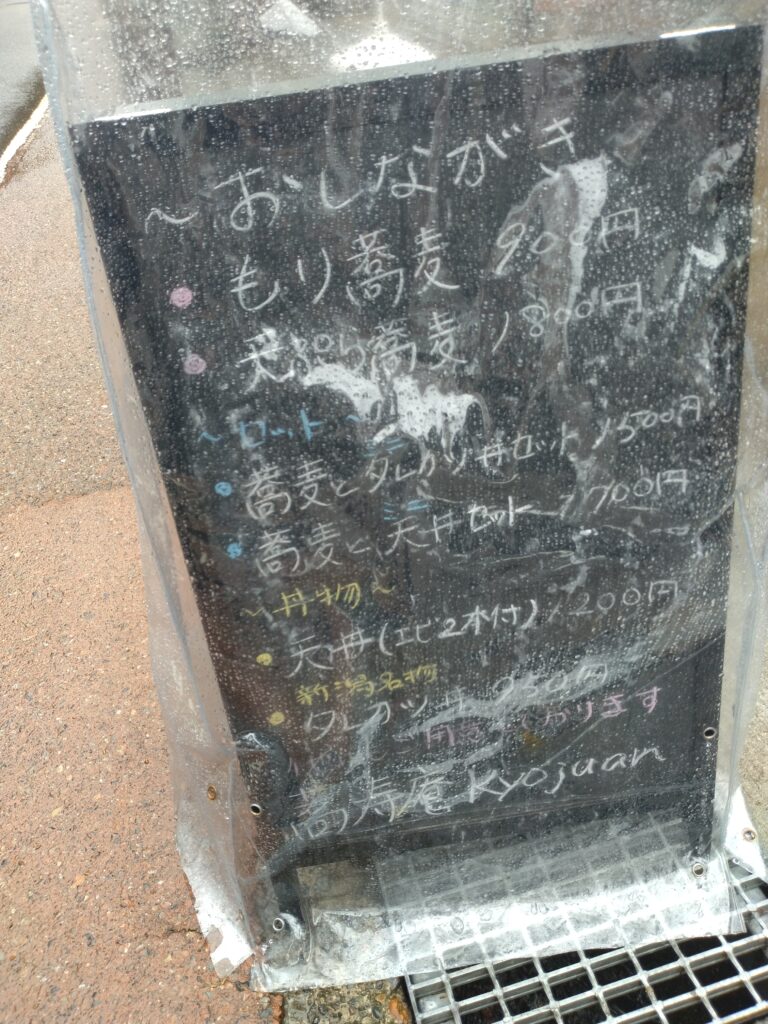 ～おしながき
もり蕎麦 900円
天ぷら蕎麦 1800円
～セット～
蕎麦とミニタレカツ丼セット 1500円
蕎麦とミニ天丼セット 1700円
～丼物～
天丼(エビ2本付) 1200円
新潟名物
タレカツ丼 950円
おります
寿庵 Kyojuan